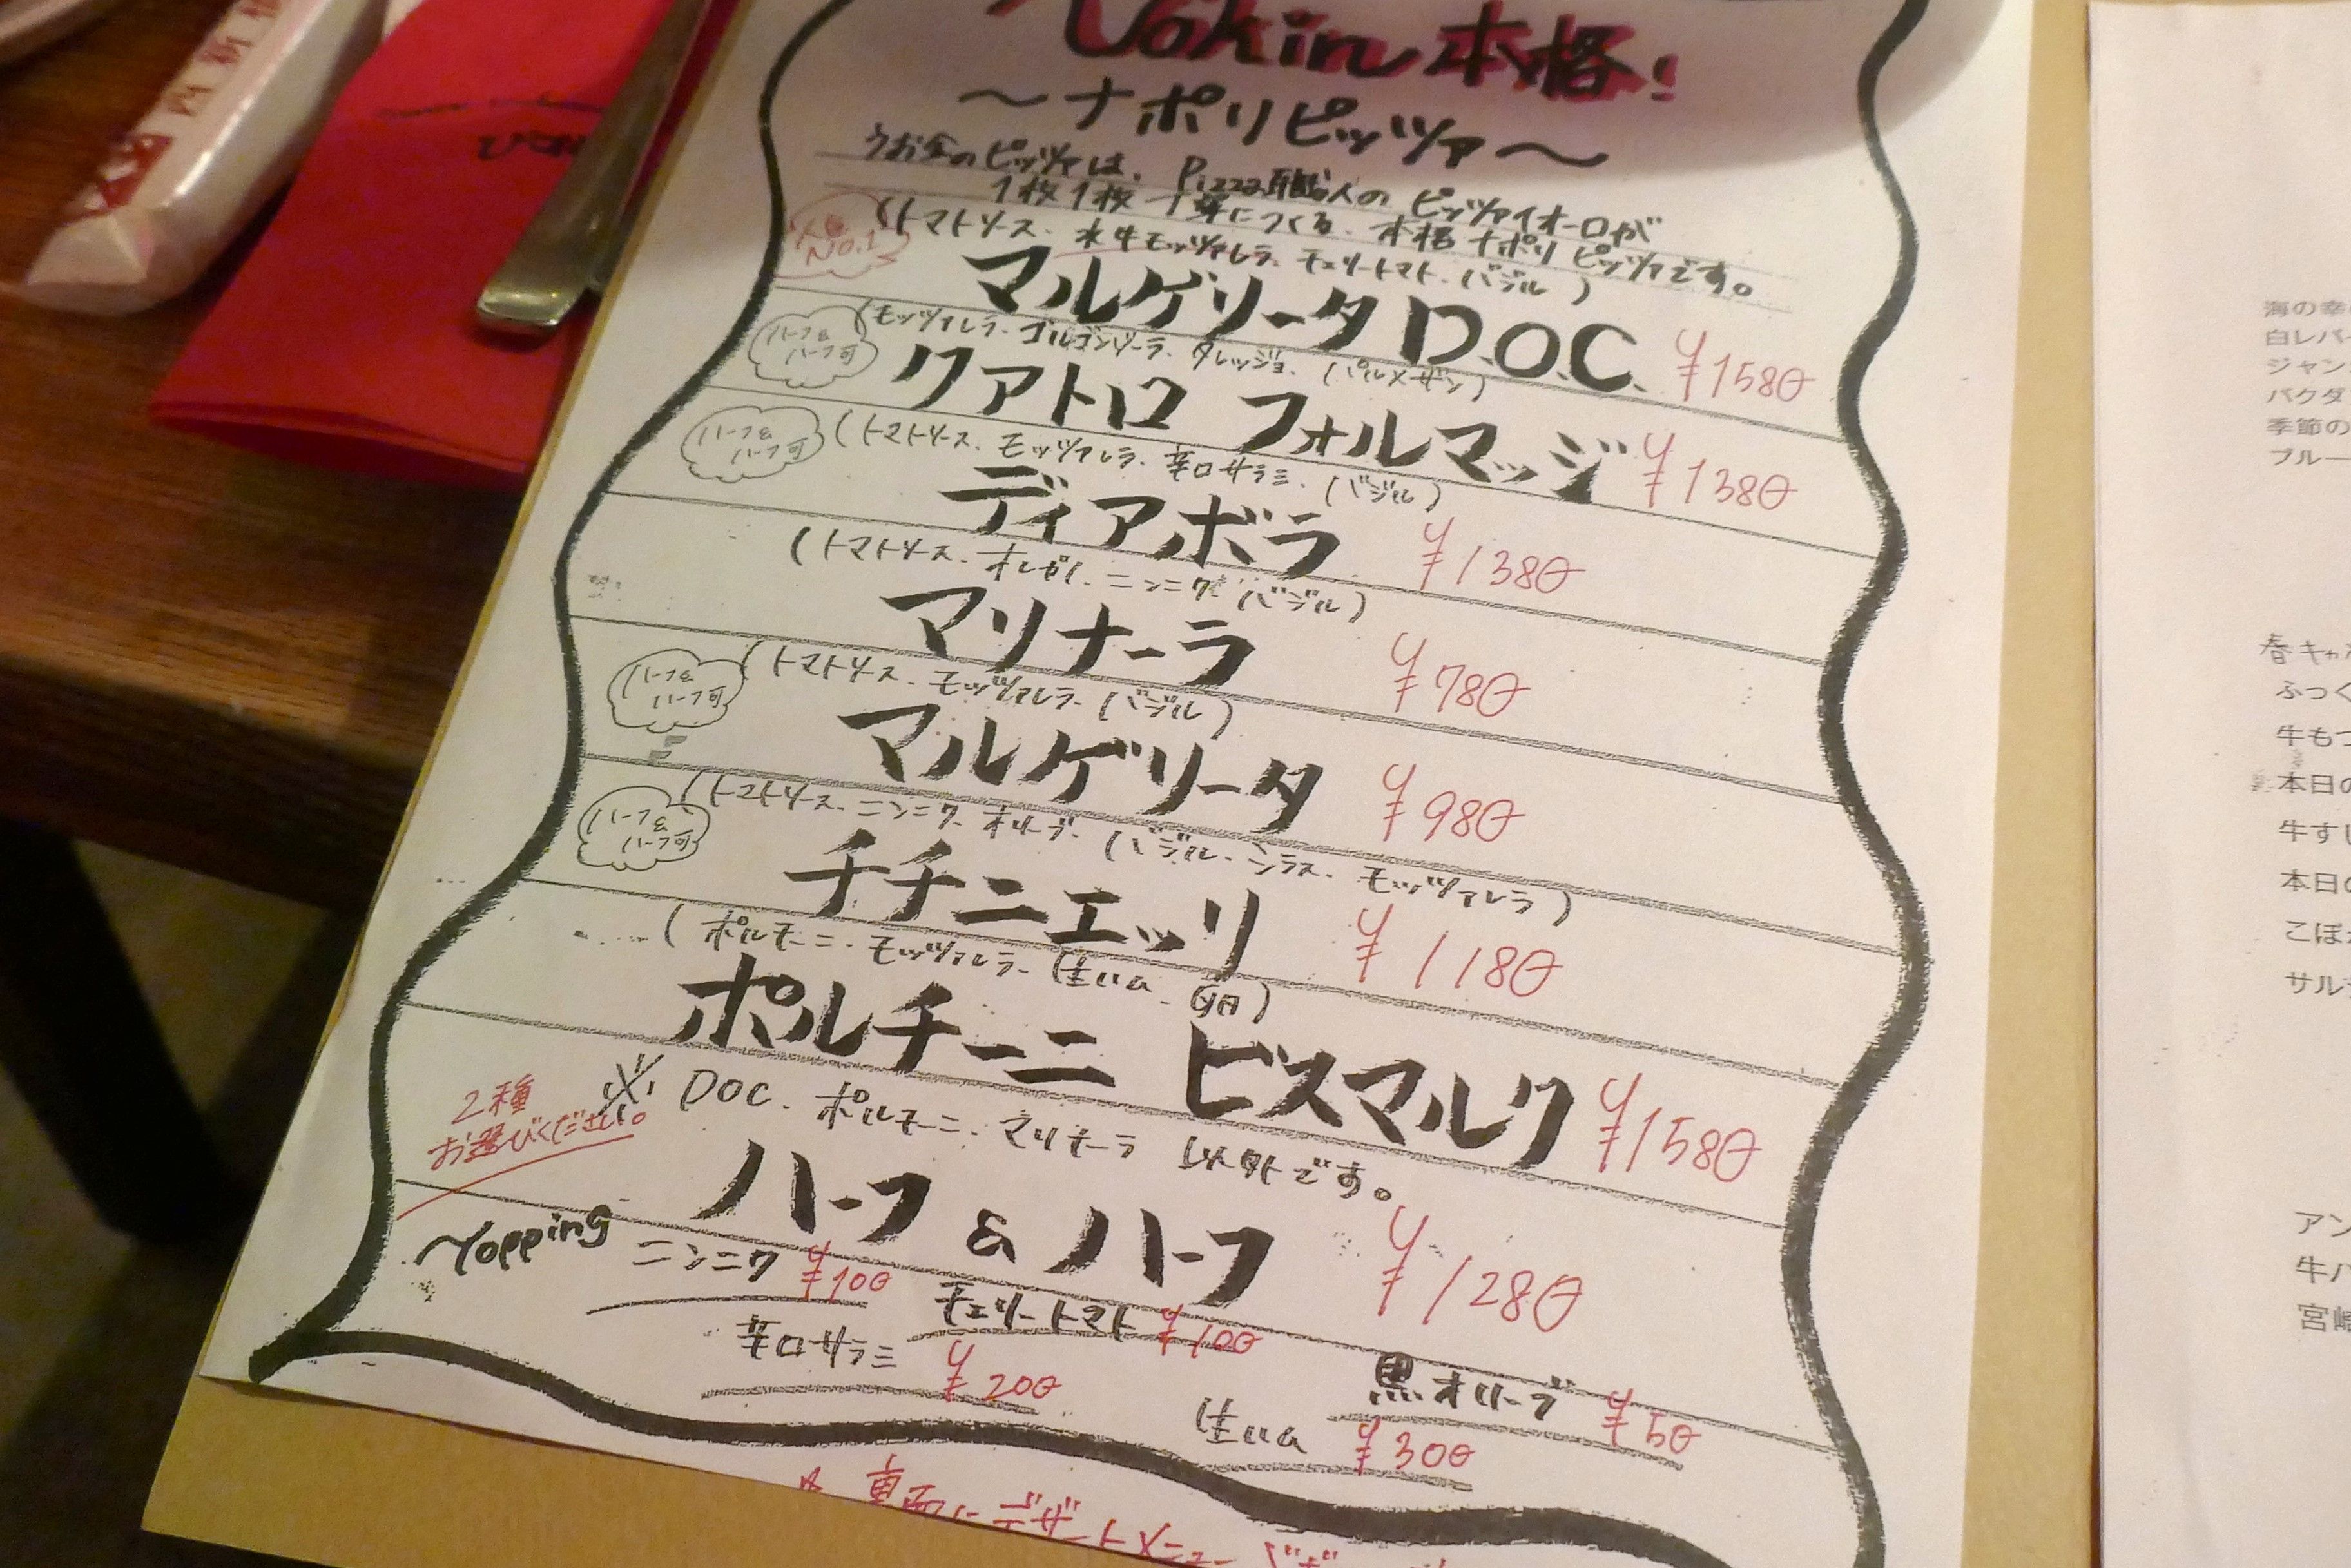 Uokin 本格!
〜ナポリピッツァ〜
うお金のピッツァは、Pizza職人の ピッツァイオーロが
1枚1枚 丁寧につくる、本格 ナポリ ピッツァです。
人気 NO.1
(トマトソース、水牛モッツァレラ、チェリートマト、バジル)
マルゲリータ D.O.C. ¥1580
ハーフ&
ハーフ可
(モッツァレラ、ゴルゴンゾーラ、タレッジョ、(パルメザン)
クアトロ フォルマッジ ¥1380
ハーフ&
ハーフ可
(トマトソース、モッツァレラ、辛口サラミ、(バジル)
ディアボラ ¥1380
(トマトソース、オレガノ、ニンニク (バジル)
マリナーラ ¥780
ハーフ&
ハーフ可
(トマトソース、モッツァレラ、(バジル)
マルゲリータ ¥980
ハーフ&
ハーフ可
(トマトソース、ニンニク、オリーブ、(バジル、シラス、モッツァレラ)
チチニエッリ ¥1180
(ポルチーニ、モッツァレラ、(生ハム、卵)
ポルチーニ ビスマルク ¥1580
2種
お選びください。
※ DOC、ポルチーニ、マリナーラ 以外です。
ハーフ & ハーフ ¥1280
Topping
ニンニク ¥100
チェリートマト ¥100
黒オリーブ ¥50
辛口サラミ ¥200
生ハム ¥300
裏面にデザートメニュー
海の幸
白レバ
ジャン
バクダ
季節の
ブルー
春キャ
ふっく
牛もつ
本日の
牛すじ
本日の
こぼ
サル
アン
牛ハ
宮崎